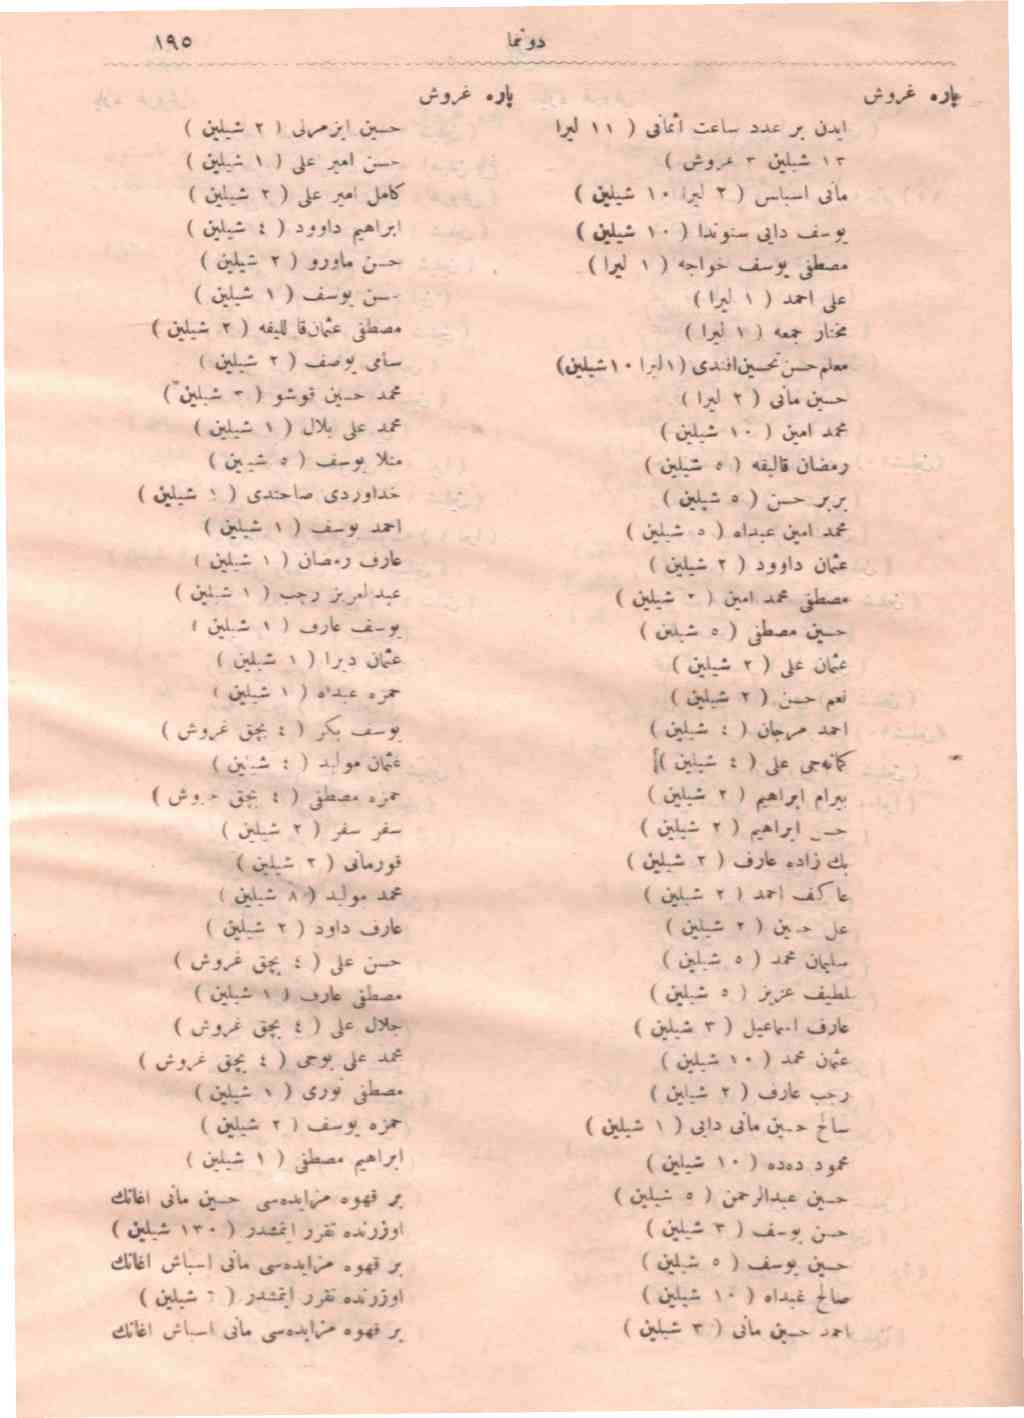 دونما ١٩٥
پاره غروش
ایدن بر عدد ساعت اثمانی ( ١١ لیرا
١٣ شیلین ٣ غروش )
مانی اسباسی ( ٢ لیرا ١٠ شیلین )
یوسف دایی ستوندا ( ١٠ شیلین )
مصطفی یوسف خواجه ( ١ لیرا )
علی احمد ( ١ لیرا )
مختار جمعه ( ١ لیرا )
معلم حسن تحسین افندی ( ١ لیرا ١٠ شیلین )
حسین مانی ( ٢ لیرا )
محمد امین ( ١٠ شیلین )
رمضان قالیفه ( ٥ شیلین )
بربر حسن ( ٥ شیلین )
محمد امین عبداه ( ٥ شیلین )
عثمان داوود ( ٢ شیلین )
مصطفی محمد امین ( ٢ شیلین )
حسین مصطفی ( ٥ شیلین )
عثمان علی ( ٢ شیلین )
نعم حسن ( ٢ شیلین )
احمد مرجان ( ٤ شیلین )
کمانه‌جی علی ( ٤ شیلین )
بیرام ابراهیم ( ٢ شیلین )
حسن ابراهیم ( ٢ شیلین )
بك زاده عارف ( ٢ شیلین )
عاکف احمد ( ٢ شیلین )
علی حسین ( ٢ شیلین )
سلیمان محمد ( ٥ شیلین )
لطیف عزیز ( ٥ شیلین )
عارف اسماعیل ( ٣ شیلین )
عثمان محمد ( ١٠ شیلین )
رجب عارف ( ٢ شیلین )
سالخ حسین مانی دایی ( ١ شیلین )
محمود دەدە ( ١٠ شیلین )
حسین عبدالرحمن ( ٥ شیلین )
حسن یوسف ( ٣ شیلین )
حسین یوسف ( ٥ شیلین )
صالح عبداه ( ١٠ شیلین )
احمد حسین مانی ( ٣ شیلین )
پاره غروش
حسین ایزمرلی ( ٢ شیلین )
حسن امیر علی ( ١ شیلین )
کامل امیر علی ( ٢ شیلین )
ابراهیم داوود ( ٤ شیلین )
حسن ماورو ( ٢ شیلین )
حسن یوسف ( ١ شیلین )
مصطفی عثمان قاللیفه ( ٢ شیلین )
سامی یوصف ( ٢ شیلین )
محمد حسین قوشو ( ٣ شیلین )
محمد علی بلال ( ١ شیلین )
منلا یوسف ( ٥ شیلین )
خداوردی صاحندی ( ١ شیلین )
احمد یوسف ( ١ شیلین )
عارف رمضان ( ١ شیلین )
عبدالعزیز رجب ( ١ شیلین )
یوسف عارف ( ١ شیلین )
عثمان دبرا ( ١ شیلین )
حمزه عبداه ( ١ شیلین )
یوسف بکر ( ٤ بچق غروش )
عثمان مولید ( ٤ شیلین )
حمزه مصطفی ( ٤ بچق غروش )
سفر سفر ( ٢ شیلین )
قورمانی ( ٢ شیلین )
محمد مولید ( ٨ شیلین )
عارف داود ( ٢ شیلین )
حسن علی ( ٤ بچق غروش )
مصطفی عارف ( ١ شیلین )
جلال علی ( ٤ بچق غروش )
محمد علی بوحی ( ٤ بچق غروش )
مصطفی نوری ( ١ شیلین )
حمزه یوسف ( ٢ شیلین )
ابراهیم مصطفی ( ١ شیلین )
بر قهوه مزایده‌سی حسین مانی اغانك
اوزرنده تقرر ایتمشدر ( ١٣٠ شیلین )
بر قهوه مزایده‌سی مانی اسباش اغانك
اوزرنده تقرر ایتمشدر ( ٦ شیلین )
بر قهوه مزایده‌سی مانی اسباش اغانك